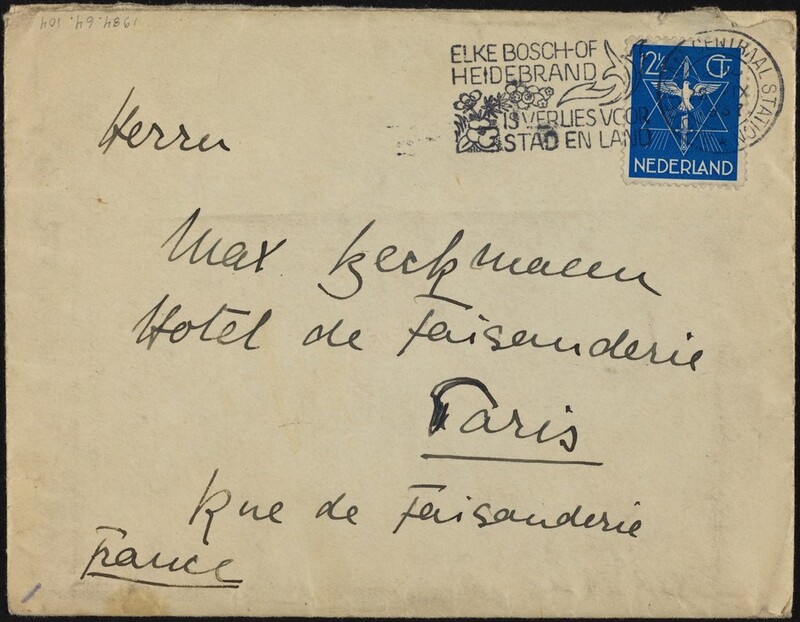 1984.64.104
ELKE BOSCH-OF
HEIDEBRAND
IS VERLIES VOOR
STAD EN LAND
CENTRAAL STATION
IX
12½ CT
NEDERLAND
Herrn
Max Beckmann
Hotel de Faisanderie
Paris
Rue de Faisanderie
France